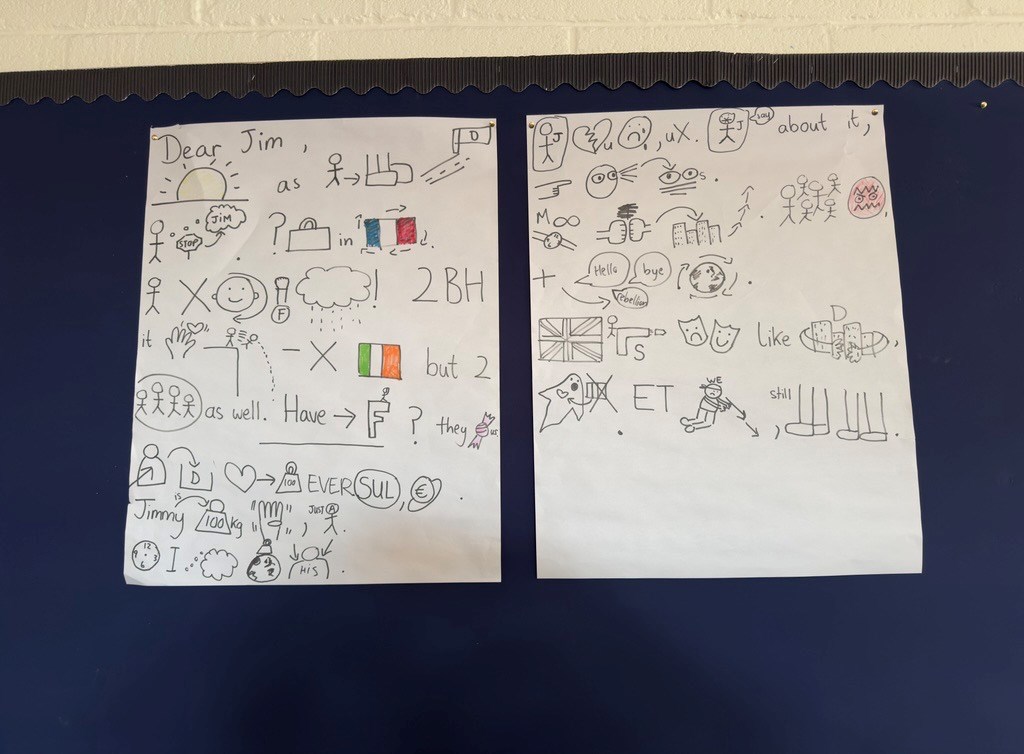 Dear Jim,
D
as
STOP JIM
? in .
X F ! 2BH
it - X but 2
as well. Have → F ? they us
D 100 EVER SUL, € .
Jimmy is 100 kg " ", JUST A .
12 3 6 9 I HIS .
J u , ux. J say about it,
s .
M∞ .
+ Hello bye rebellion .
S like D ,
. ET WE , still .